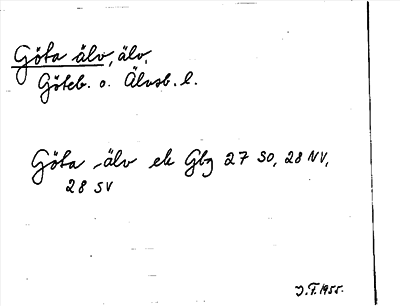 Göta älv, älv.
Göteb. o. Älvsb. l.
Göta älv ek Gbg 27 SO, 28 NV,
28 SV
J.F. 1955.